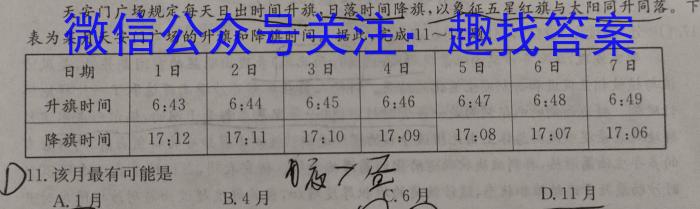 天安门广场规定每天日出时间升旗,日落时间降旗,以象征五星红旗与太阳同升同落。下
表为某
微信公众号关注:趣找答案
日期 1日 2日 3日 4日 5日 6日 7日
升旗时间 6:43 6:44 6:45 6:46 6:47 6:48 6:49
降旗时间 17:12 17:11 17:10 17:09 17:08 17:07 17:06
D 11.该月最有可能是
A.1月 B.4月 C.6月 D.11月